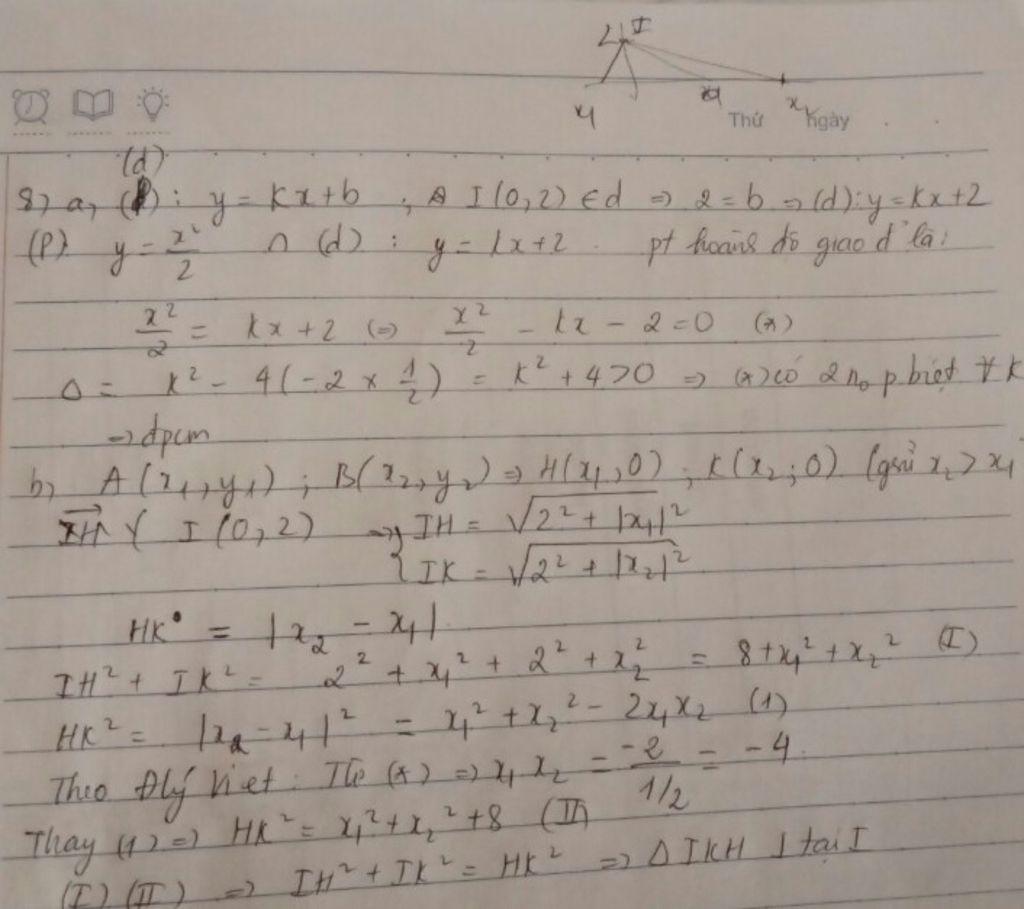 2 I
x₁ x₂
Thứ Ngày
(d)
8) a, (d): y = kx + b ; I(0,2) ∈ d ⇒ 2 = b ⇒ (d): y = kx + 2
(P) y = x²/2 ∩ (d) : y = kx + 2 . pt hoàng độ giao đ' là:
x²/2 = kx + 2 (⇒) x²/2 - kx - 2 = 0 (*)
Δ = k² - 4(-2 × 1/2) = k² + 4 > 0 ⇒ (*) có 2 n₀ p.biệt ∀ k
⇒ đpcm
b, A(x₁, y₁) ; B(x₂, y₂) ⇒ H(x₁, 0) ; K(x₂; 0) (gsử x₂ > x₁
IH { I(0, 2) ⇒ { IH = √2² + |x₁|²
IK = √2² + |x₂|²
HK = |x₂ - x₁|
IH² + IK² = 2² + x₁² + 2² + x₂² = 8 + x₁² + x₂² (I)
HK² = |x₂ - x₁|² = x₁² + x₂² - 2x₁x₂ (1)
Theo Đlý Viet: Từ (*) ⇒ x₁ x₂ = -2/1/2 = -4.
Thay (1) ⇒ HK² = x₁² + x₂² + 8 (II)
(I) (II) ⇒ IH² + IK² = HK² ⇒ Δ IKH ⊥ tại I